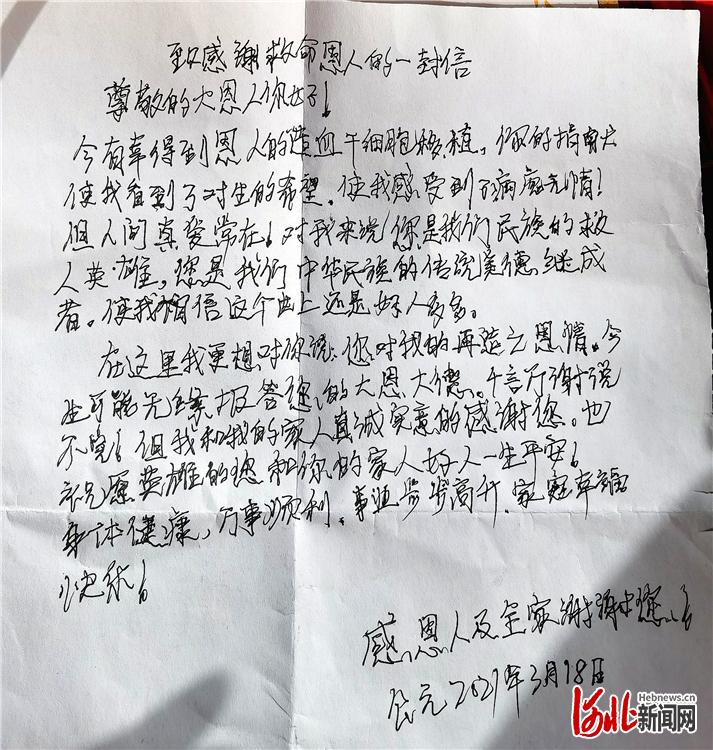 致感谢救命恩人的一封信
尊敬的大恩人你好!
今有幸得到恩人的造血干细胞移植,你的捐献
使我看到了对生的希望。使我感受到了病魔无情!
但人间真爱常在!对我来说!您是我们民族的救
人英雄,您是我们中华民族的传统美德继成
者。使我相信这个世上还是好人多多。
在这里我更想对你说:您对我的再造之恩情。今
生可能无缘报答您的大恩大德。千言万谢说
不完!但我和我的家人真诚实意的感谢您。也
祝愿英雄的您和你的家人好人一生平安!
身体健康,万事顺利,事业步步高升.家庭幸福
快乐!
感恩人及全家谢谢您!
公元2021年3月18日
Hebnews.cn
河北新闻网